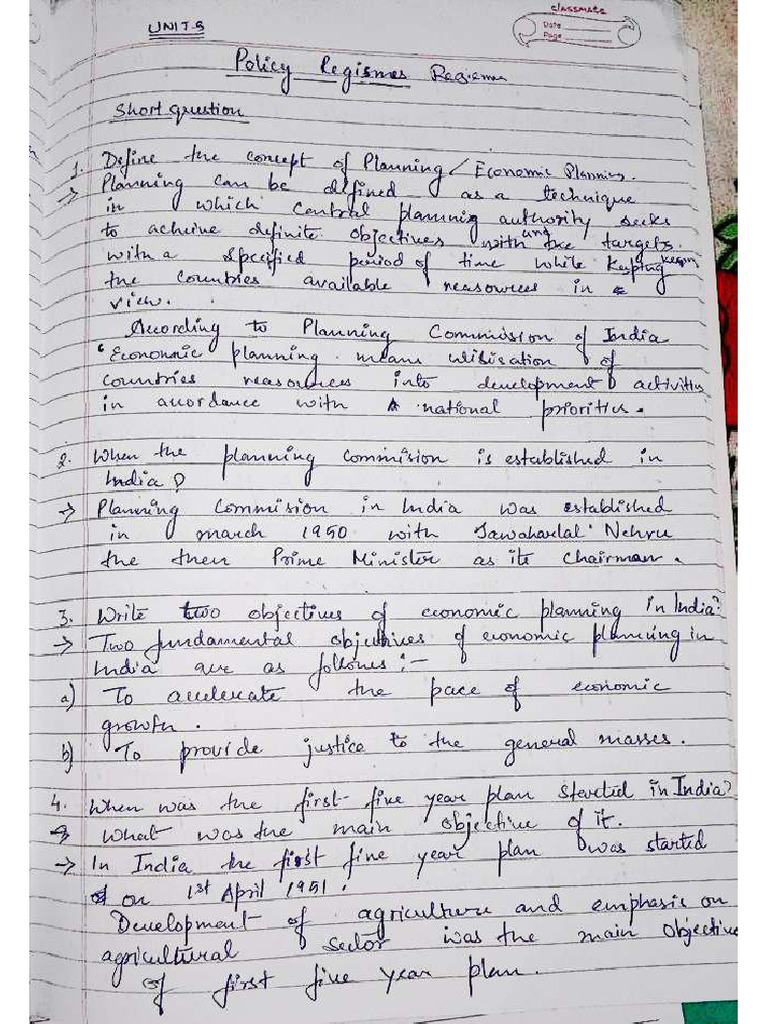 classmate
Date
Page
UNIT-5
Policy Regismes Regiems
Short question
1. Define the concept of Planning / Economic Planning.
→ Planning can be defined as a technique
in which central planning authority seeks
to achieve definite objectives and with the targets
with a specified period of time while keeping
the countries available reasources in
view.
According to Planning Commission of India
"Economic planning means utilisation of
countries reasources into development activities
in accordance with national priorities.
2. When the planning commision is established in
India?
→ Planning Commision in India was established
in march 1950 with Jawaharlal Nehru
the then Prime Minister as its Chairman.
3. Write two objectives of economic planning in India?
→ Two fundamental objectives of economic planning in
India are as follows:-
a) To accelerate the pace of economic
growth.
b) To provide justice to the general masses.
4. When was the first five year plan started in India?
→ What was the main objective of it.
→ In India the first five year plan was started
on 1st April 1951.
Development of agriculture and emphasis on
agricultural sector was the main objective
of first five year plan.